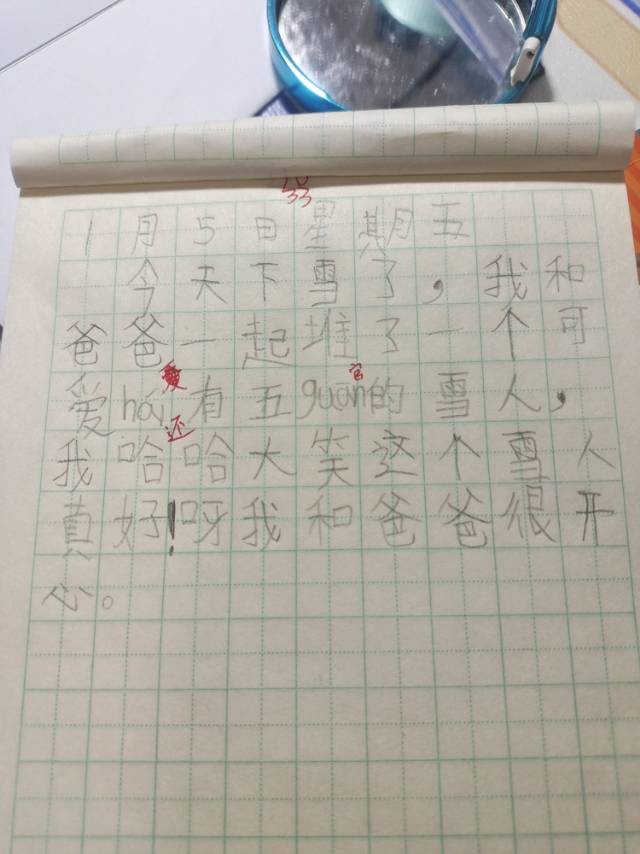 1月5日星期五
今天下雪了，我和
爸爸一起堆了一个可
爱hái有五guān的雪人，
爱
官
还
我哈哈大笑这个雪人
真好！呀我和爸爸很开
心。